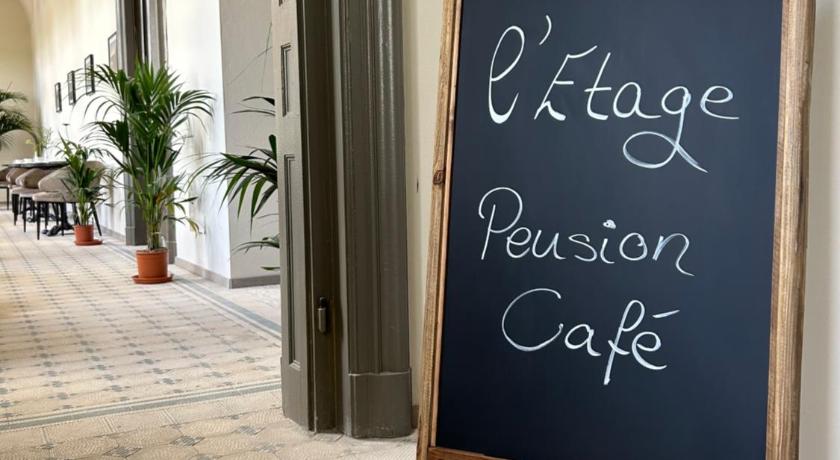 l'Etage
Pension
Café